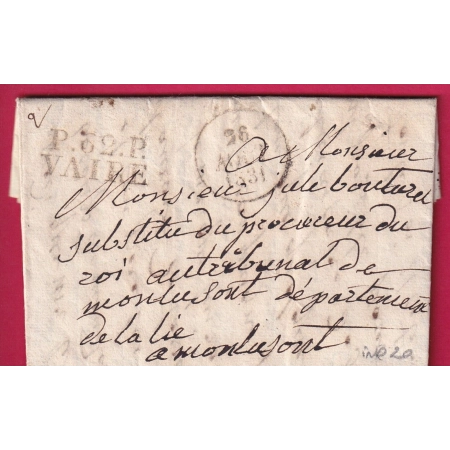 P.32.P.
VAIRE
26
1831
A Monsieur
Monsieur jule bouturel
substitu du procureur du
roi au tribunal de
monlusont département
de la lie
a monlusont
ind 20